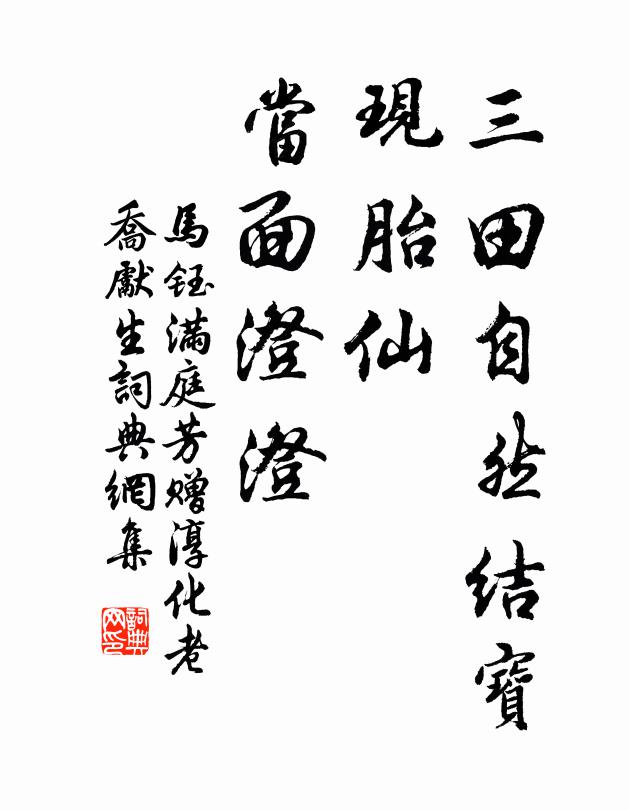 三田自然結寶
現胎仙
當面澄澄
馬鈺滿庭芳赠淳化老
喬獻生詞典網集
詞典网印